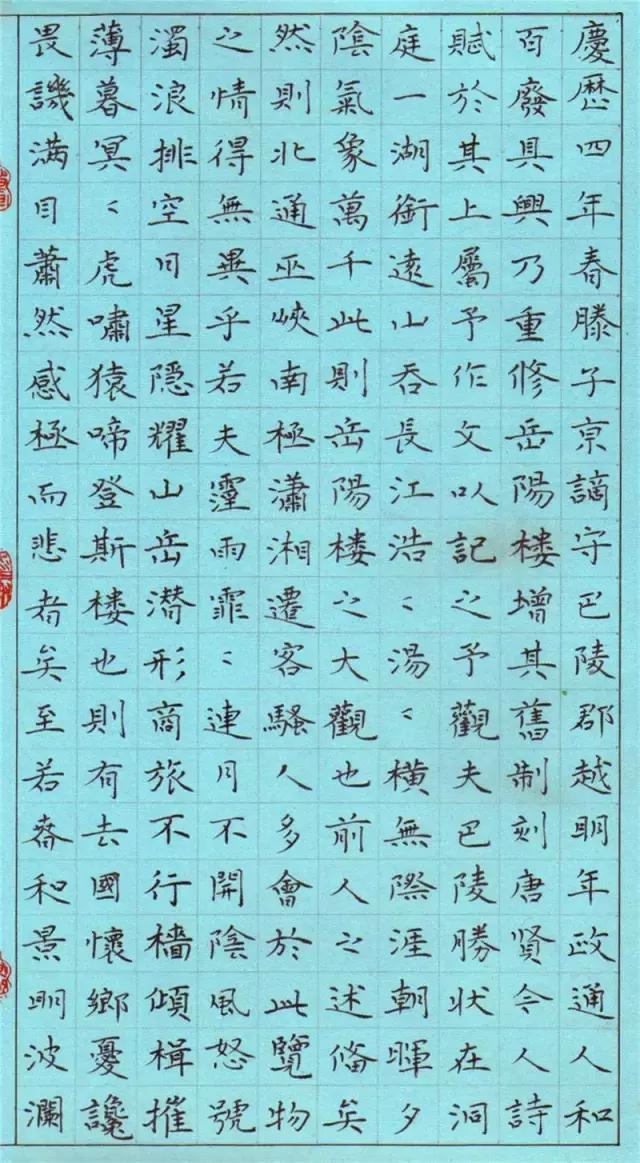 慶歷四年春滕子京謫守巴陵郡越明年政通人和
百廢具興乃重修岳陽楼增其舊制刻唐賢今人詩
賦於其上屬予作文以記之予觀夫巴陵勝状在洞
庭一湖銜遠山吞長江浩〻湯〻横無際涯朝暉夕
陰氣象萬千此則岳陽楼之大觀也前人之述俻矣
然則北通巫峽南極瀟湘遷客騷人多會於此覽物
之情得無異乎若夫霪雨霏〻連月不開陰風怒號
濁浪排空日星隱耀山岳潜形商旅不行檣傾楫摧
薄暮冥〻虎嘯猿啼登斯楼也則有去國懷鄉憂讒
畏譏满目蕭然感極而悲者矣至若春和景明波瀾